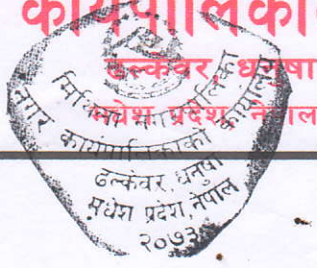 कार्यपालिकाको
ढल्केवर, धनुषा
मधेश प्रदेश, नेपाल
मिथिला नगरपालिका
नगर कार्यपालिकाको कार्यालय
ढल्केवर, धनुषा
मधेश प्रदेश, नेपाल
२०७३